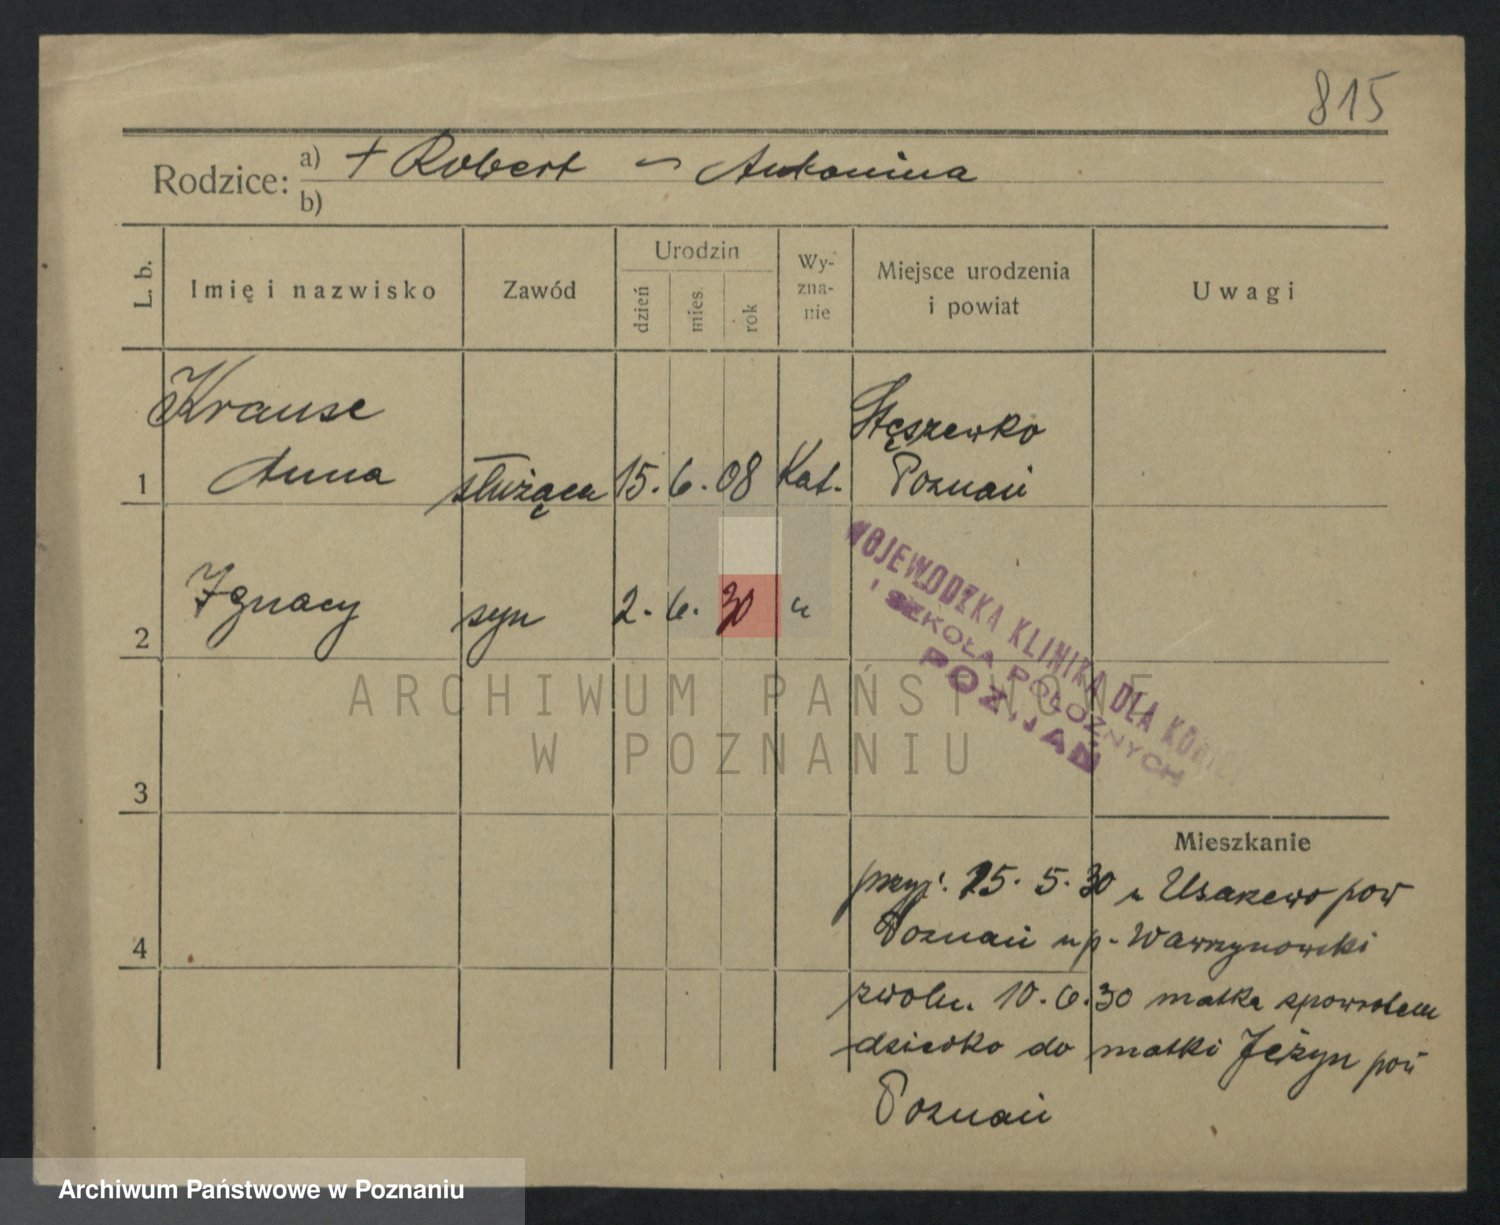 815
Rodzice: a) + Robert – Antonina
b)
L. b.
Imię i nazwisko
Zawód
Urodzin
dzień
mies.
rok
Wy-
zna-
nie
Miejsce urodzenia
i powiat
Uwagi
Krause
Anna
1
służąca
15. 6. 08
Kat.
Stęszewko
Poznań
2
Ignacy
syn
2. 6. 30
"
WOJEWÓDZKA KLINIKA DLA KOBIET
I SZKOŁA POŁOŻNYCH
POZNAŃ
ARCHIWUM PAŃSTWOWE
W POZNANIU
3
Mieszkanie
4
przyj. 25. 5. 30 z Uzarzewo pow
Poznań u p. Wawrzynowski
zwoln. 10. 6. 30 matka spowrotem
dziecko do matki Jeżyn pow
Poznań
Archiwum Państwowe w Poznaniu